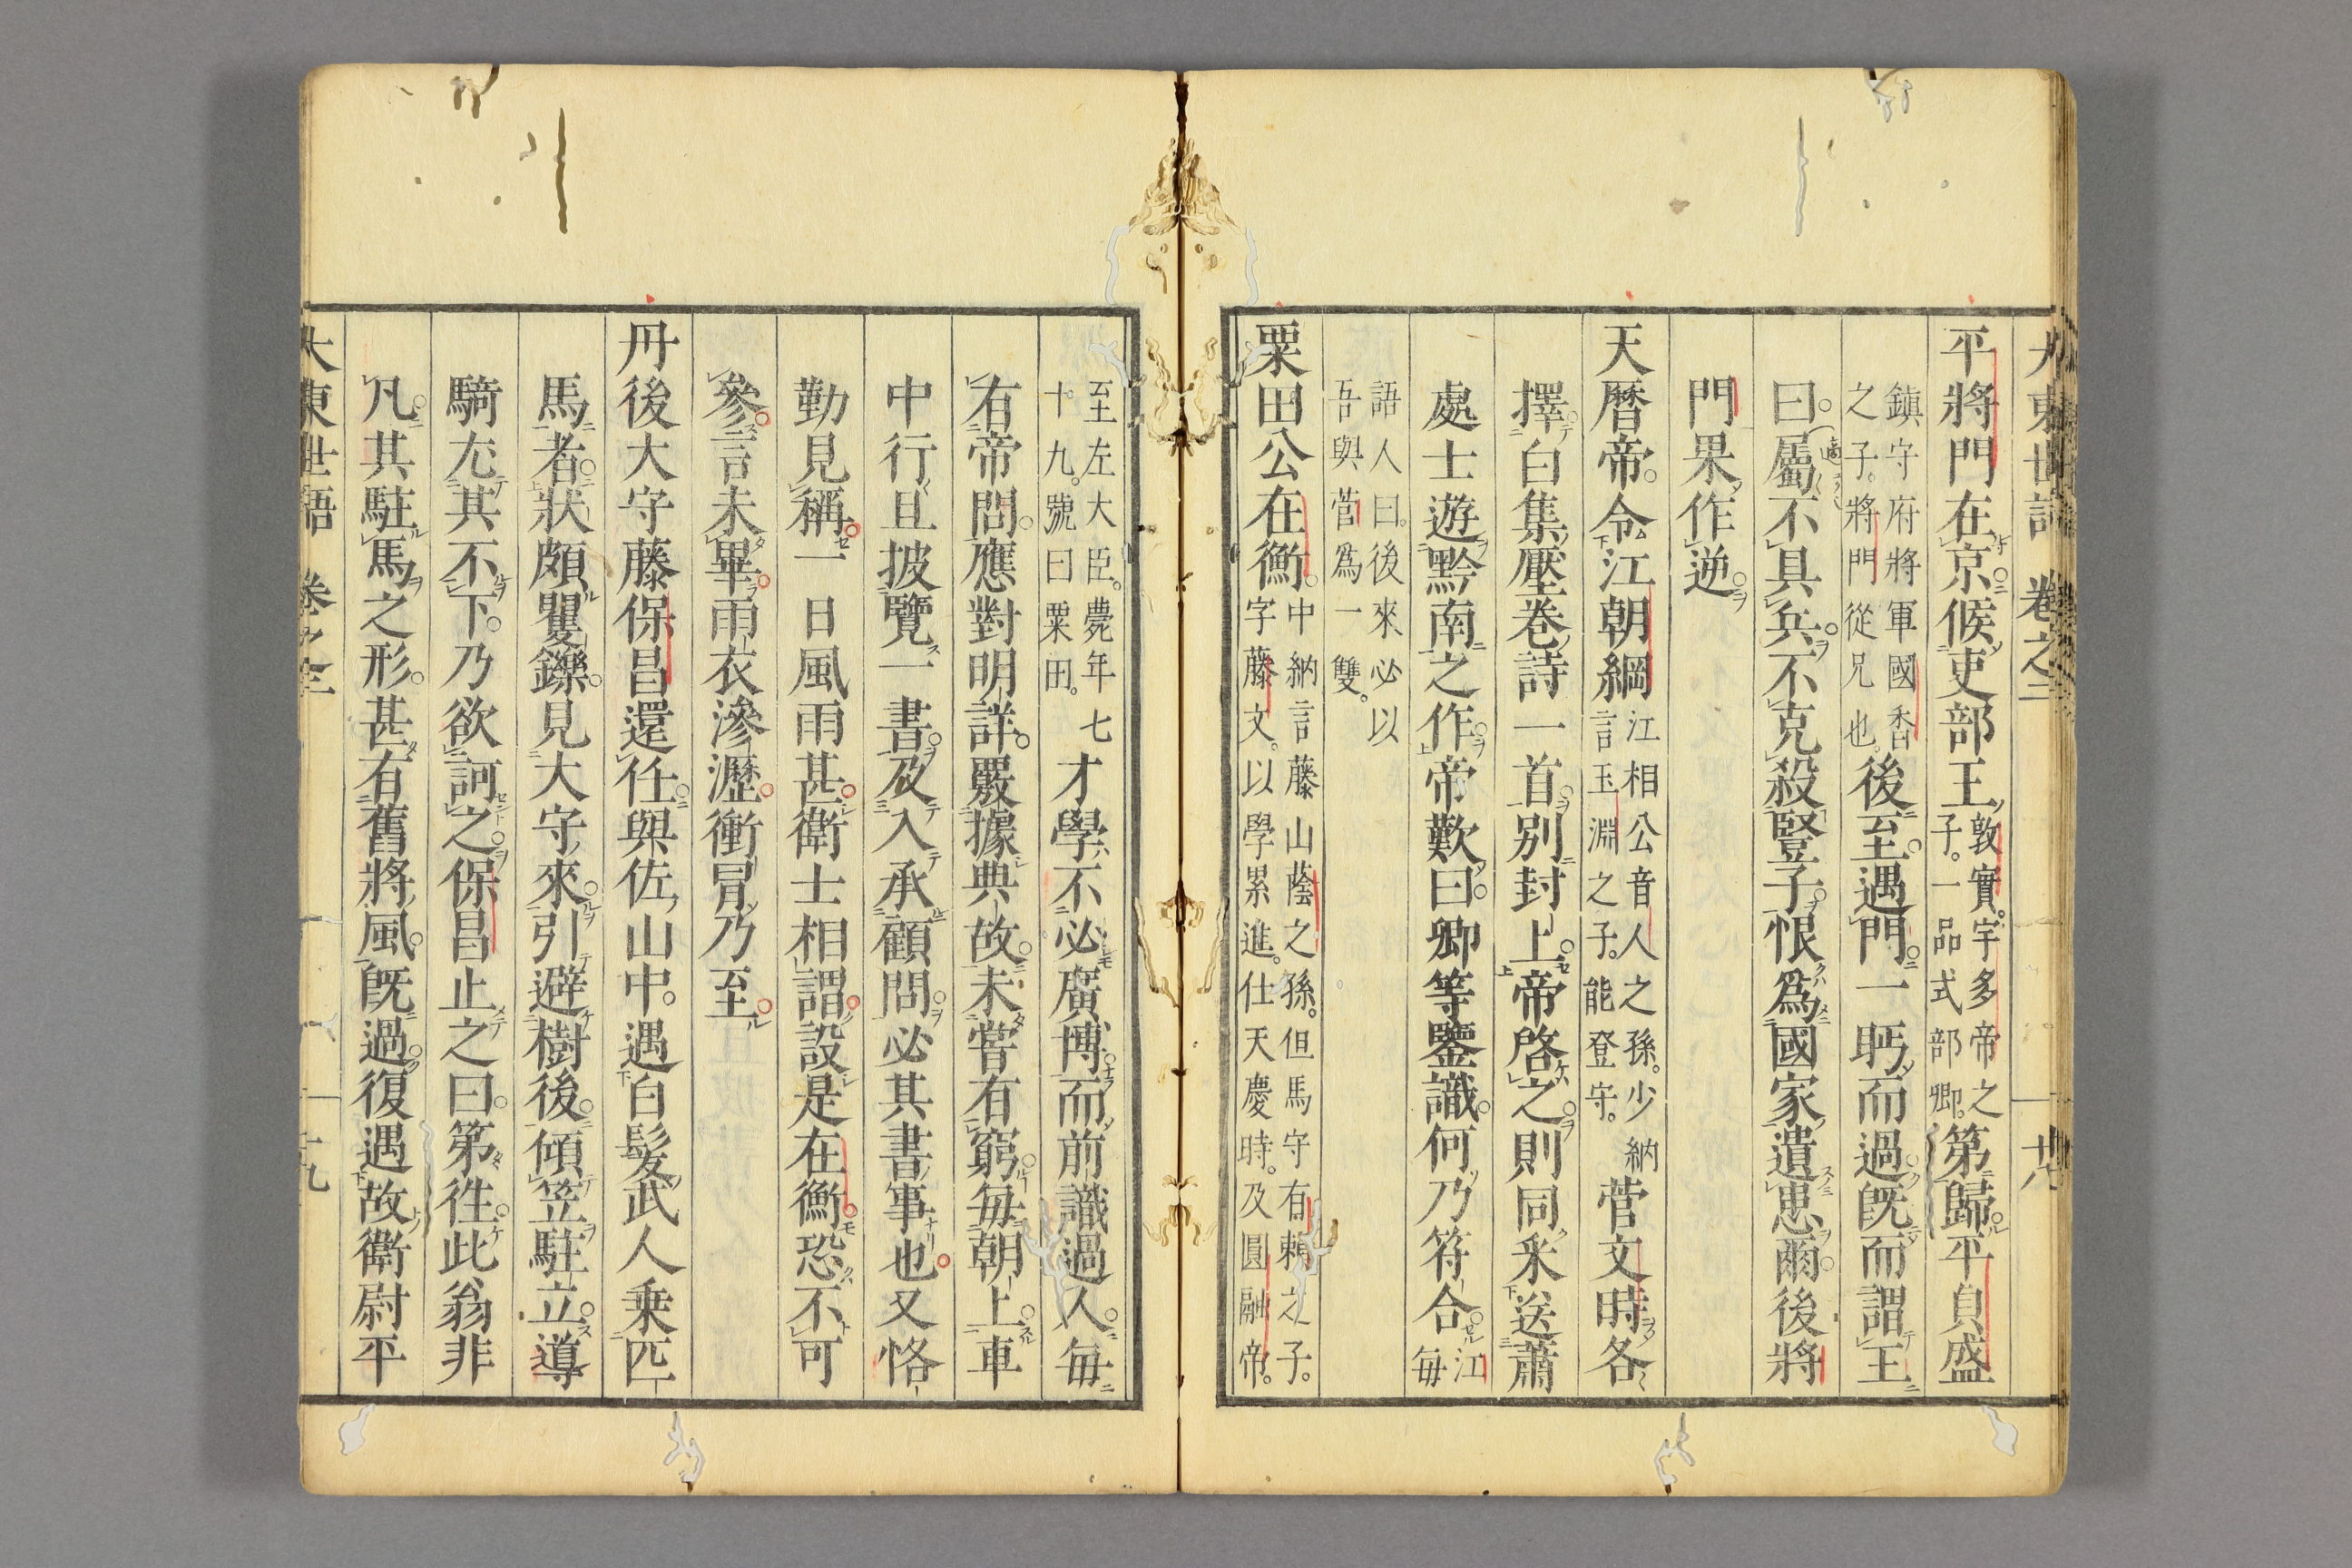 大東世語 卷之二 十八
平將門在京候吏部王敦實宇多帝之子一品式部卿第歸平貞盛
鎮守府將軍國香之子將門從兄也後至遇門一眄而過既而謂王
曰屬不具兵不克殺豎子恨爲國家遺患爾後將
門果作逆
天曆帝令江朝綱江相公音人之孫少納言玉淵之子能登守菅文時各
擇白集壓卷詩一首別封上帝啓之則同釆送蕭
處士遊黔南之作帝歎曰卿等鑒識何乃符合江每
語人曰後來必以吾與菅爲一雙
粟田公在衡中納言藤山蔭之孫但馬守有賴之子字藤文以學累進仕天慶時及圓融帝
至左大臣薨年七十九號曰粟田才學不必廣博而前識過人每
有帝問應對明詳覈據典故未嘗有窮每朝上車
中行且披覽一書及入承顧問必其書事也又恪
勤見稱一日風雨甚衛士相謂設是在衡恐不可
參言未畢雨衣滲瀝衝冒乃至
丹後大守藤保昌還任與佐山中遇白髮武人乗匹
馬者狀頗矍鑠見大守來引避樹後傾笠駐立導
騎尤其不下乃欲訶之保昌止之曰第往此翁非
凡其駐馬之形甚有舊將風既過復遇故衛尉平
大東世語 卷之二 十九